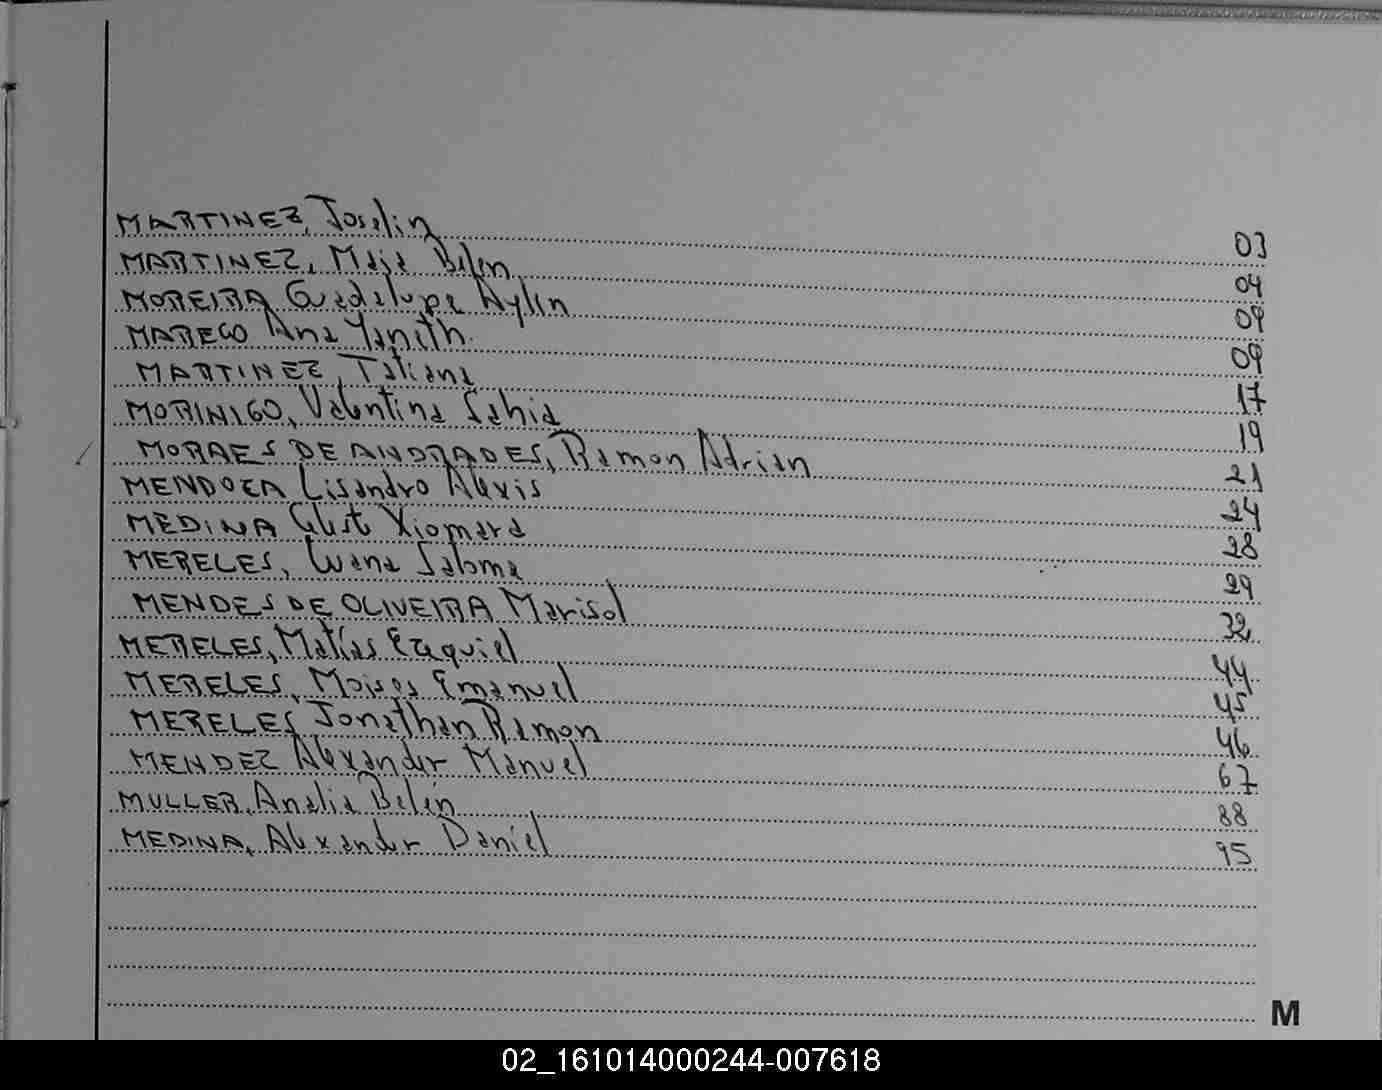 MARTINEZ, Joselin 03
MARTINEZ, Maia Belen 04
MOREIRA Guadalupe Aylin 09
MAREGO Ana Yanith 09
MARTINEZ, Tatiana 17
MORINIGO, Valentina Sahia 19
MORAES DE ANDRADES, Ramon Adrian 21
MENDOZA Lisandro Alexis 24
MEDINA Xiomara 28
MERELES, Luana Saloma 29
MENDES DE OLIVEIRA Marisol 32
MERELES, Matías Ezequiel 44
MERELES, Moises Emanuel 45
MERELES Jonathan Ramon 46
MENDEZ Alexander Manuel 67
MULLER, Analia Belén 88
MEDINA, Alexander Daniel 95
M
02_161014000244-007618